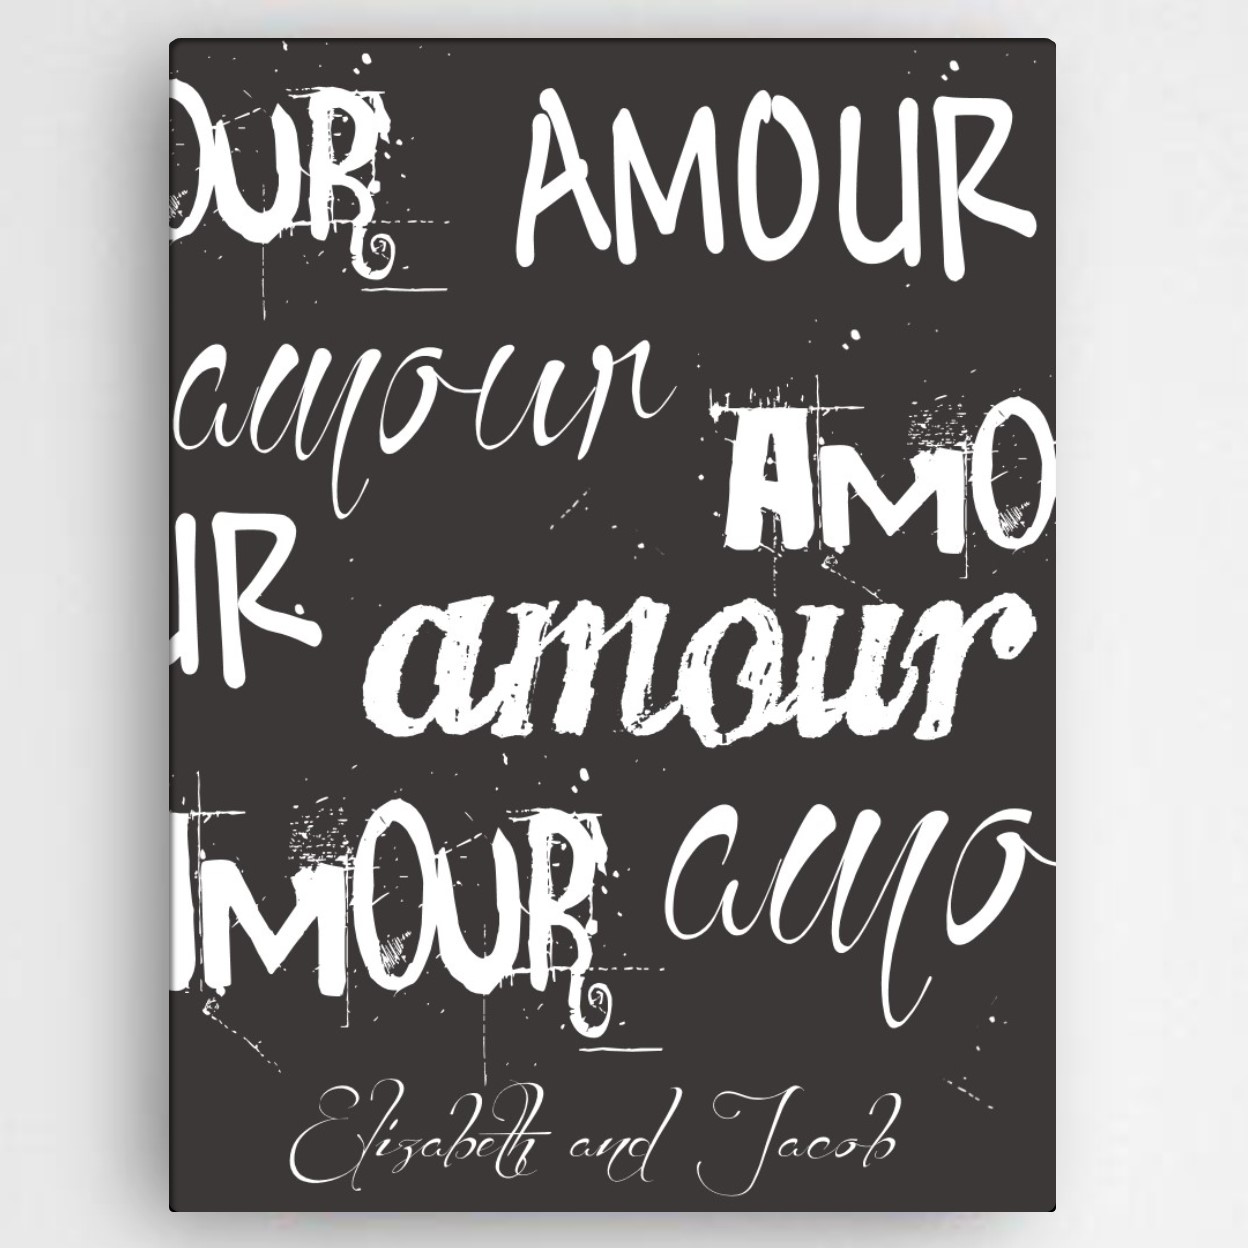 OUR AMOUR
amour
AMO
UR
amour
AMOUR amo
Elizabeth and Jacob